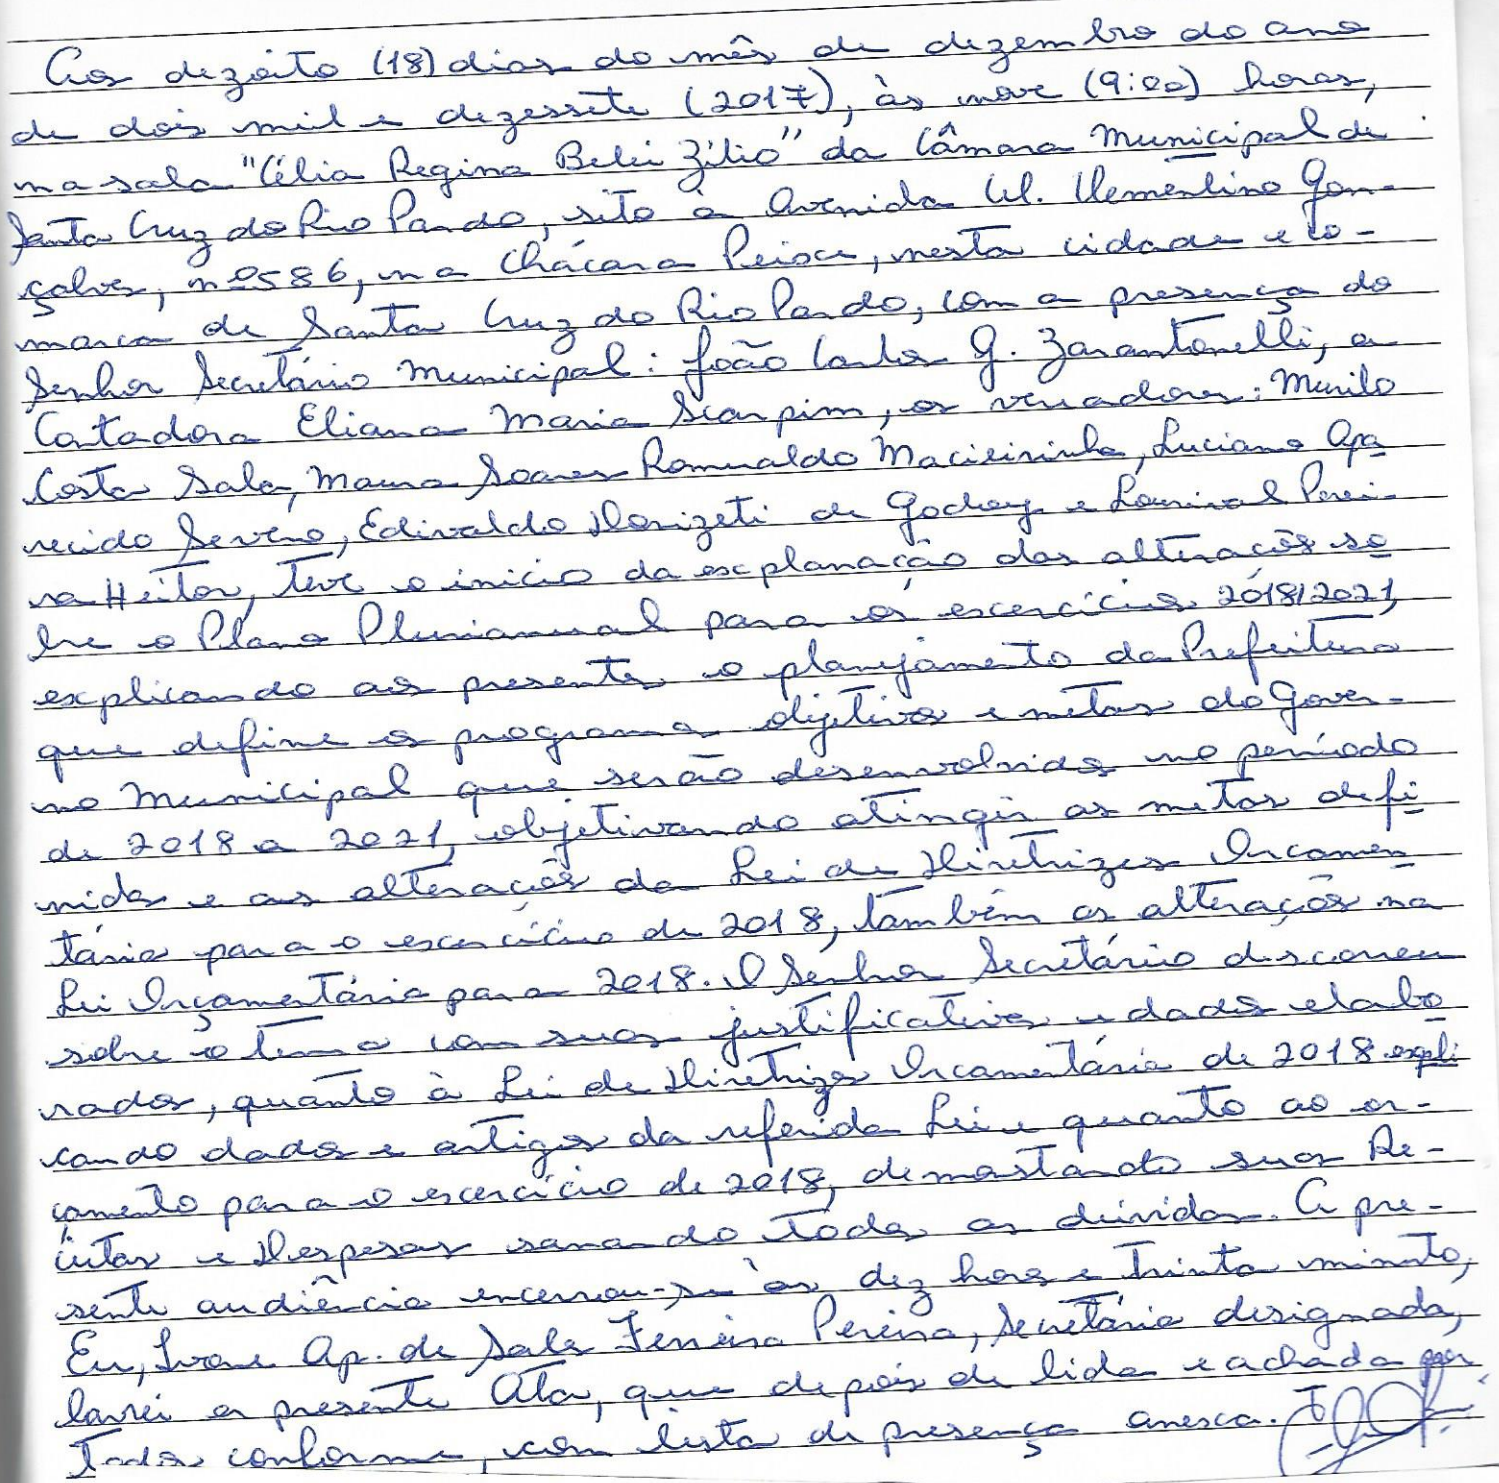 Aos dezoito (18) dias do mês de dezembro do ano
de dois mil e dezessete (2017), às nove (9:00) horas,
na sala "Célia Regina Belei Zilio" da Câmara Municipal de
Santa Cruz do Rio Pardo, sito à Avenida Cel. Clementino Gon-
çalves, nº 586, na Chácara Peixe, nesta cidade e co-
marca de Santa Cruz do Rio Pardo, com a presença do
Senhor Secretário Municipal: João Carlos G. Zarantonelli, a
Contadora Eliana Maria Scarpim, os vereadores: Murilo
Costa Sala, Maura Soares Romualdo Macieirinha, Luciano Apa
recido Severo, Edivaldo Donizeti de Godoy e Lourival Perei-
ra Heitor, teve o inicio da explanação das alterações so
bre o Plano Plurianual para os exercícios 2018/2021,
explicando aos presentes o planejamento da Prefeitura
que define os programas objetivos e metas do Gover-
no Municipal que serão desenvolvidos no período
de 2018 a 2021, objetivando atingir as metas defi
nidas e as alterações da Lei de Diretrizes Orcamen
tária para o exercício de 2018, também as alterações na
Lei Orçamentária para 2018. O Senhor Secretário discorreu
sobre o tema com suas justificativas e dados elabo
rados, quanto à Lei de Diretrizes Orcamentária de 2018 expli
cando dados e artigos da referida Lei e quanto ao or-
çamento para o exercício de 2018, demostando suas Re-
ceitas e Despesas sanando todas as dúvidas. A pre-
sente audiência encerrou-se às dez horas e trinta minutos,
Eu, Ivone Ap. de Sales Ferreira Pereira, Secretária designada,
lavrei a presente Ata, que depois de lida e achada por
todos conforme, com lista de presença anexa.